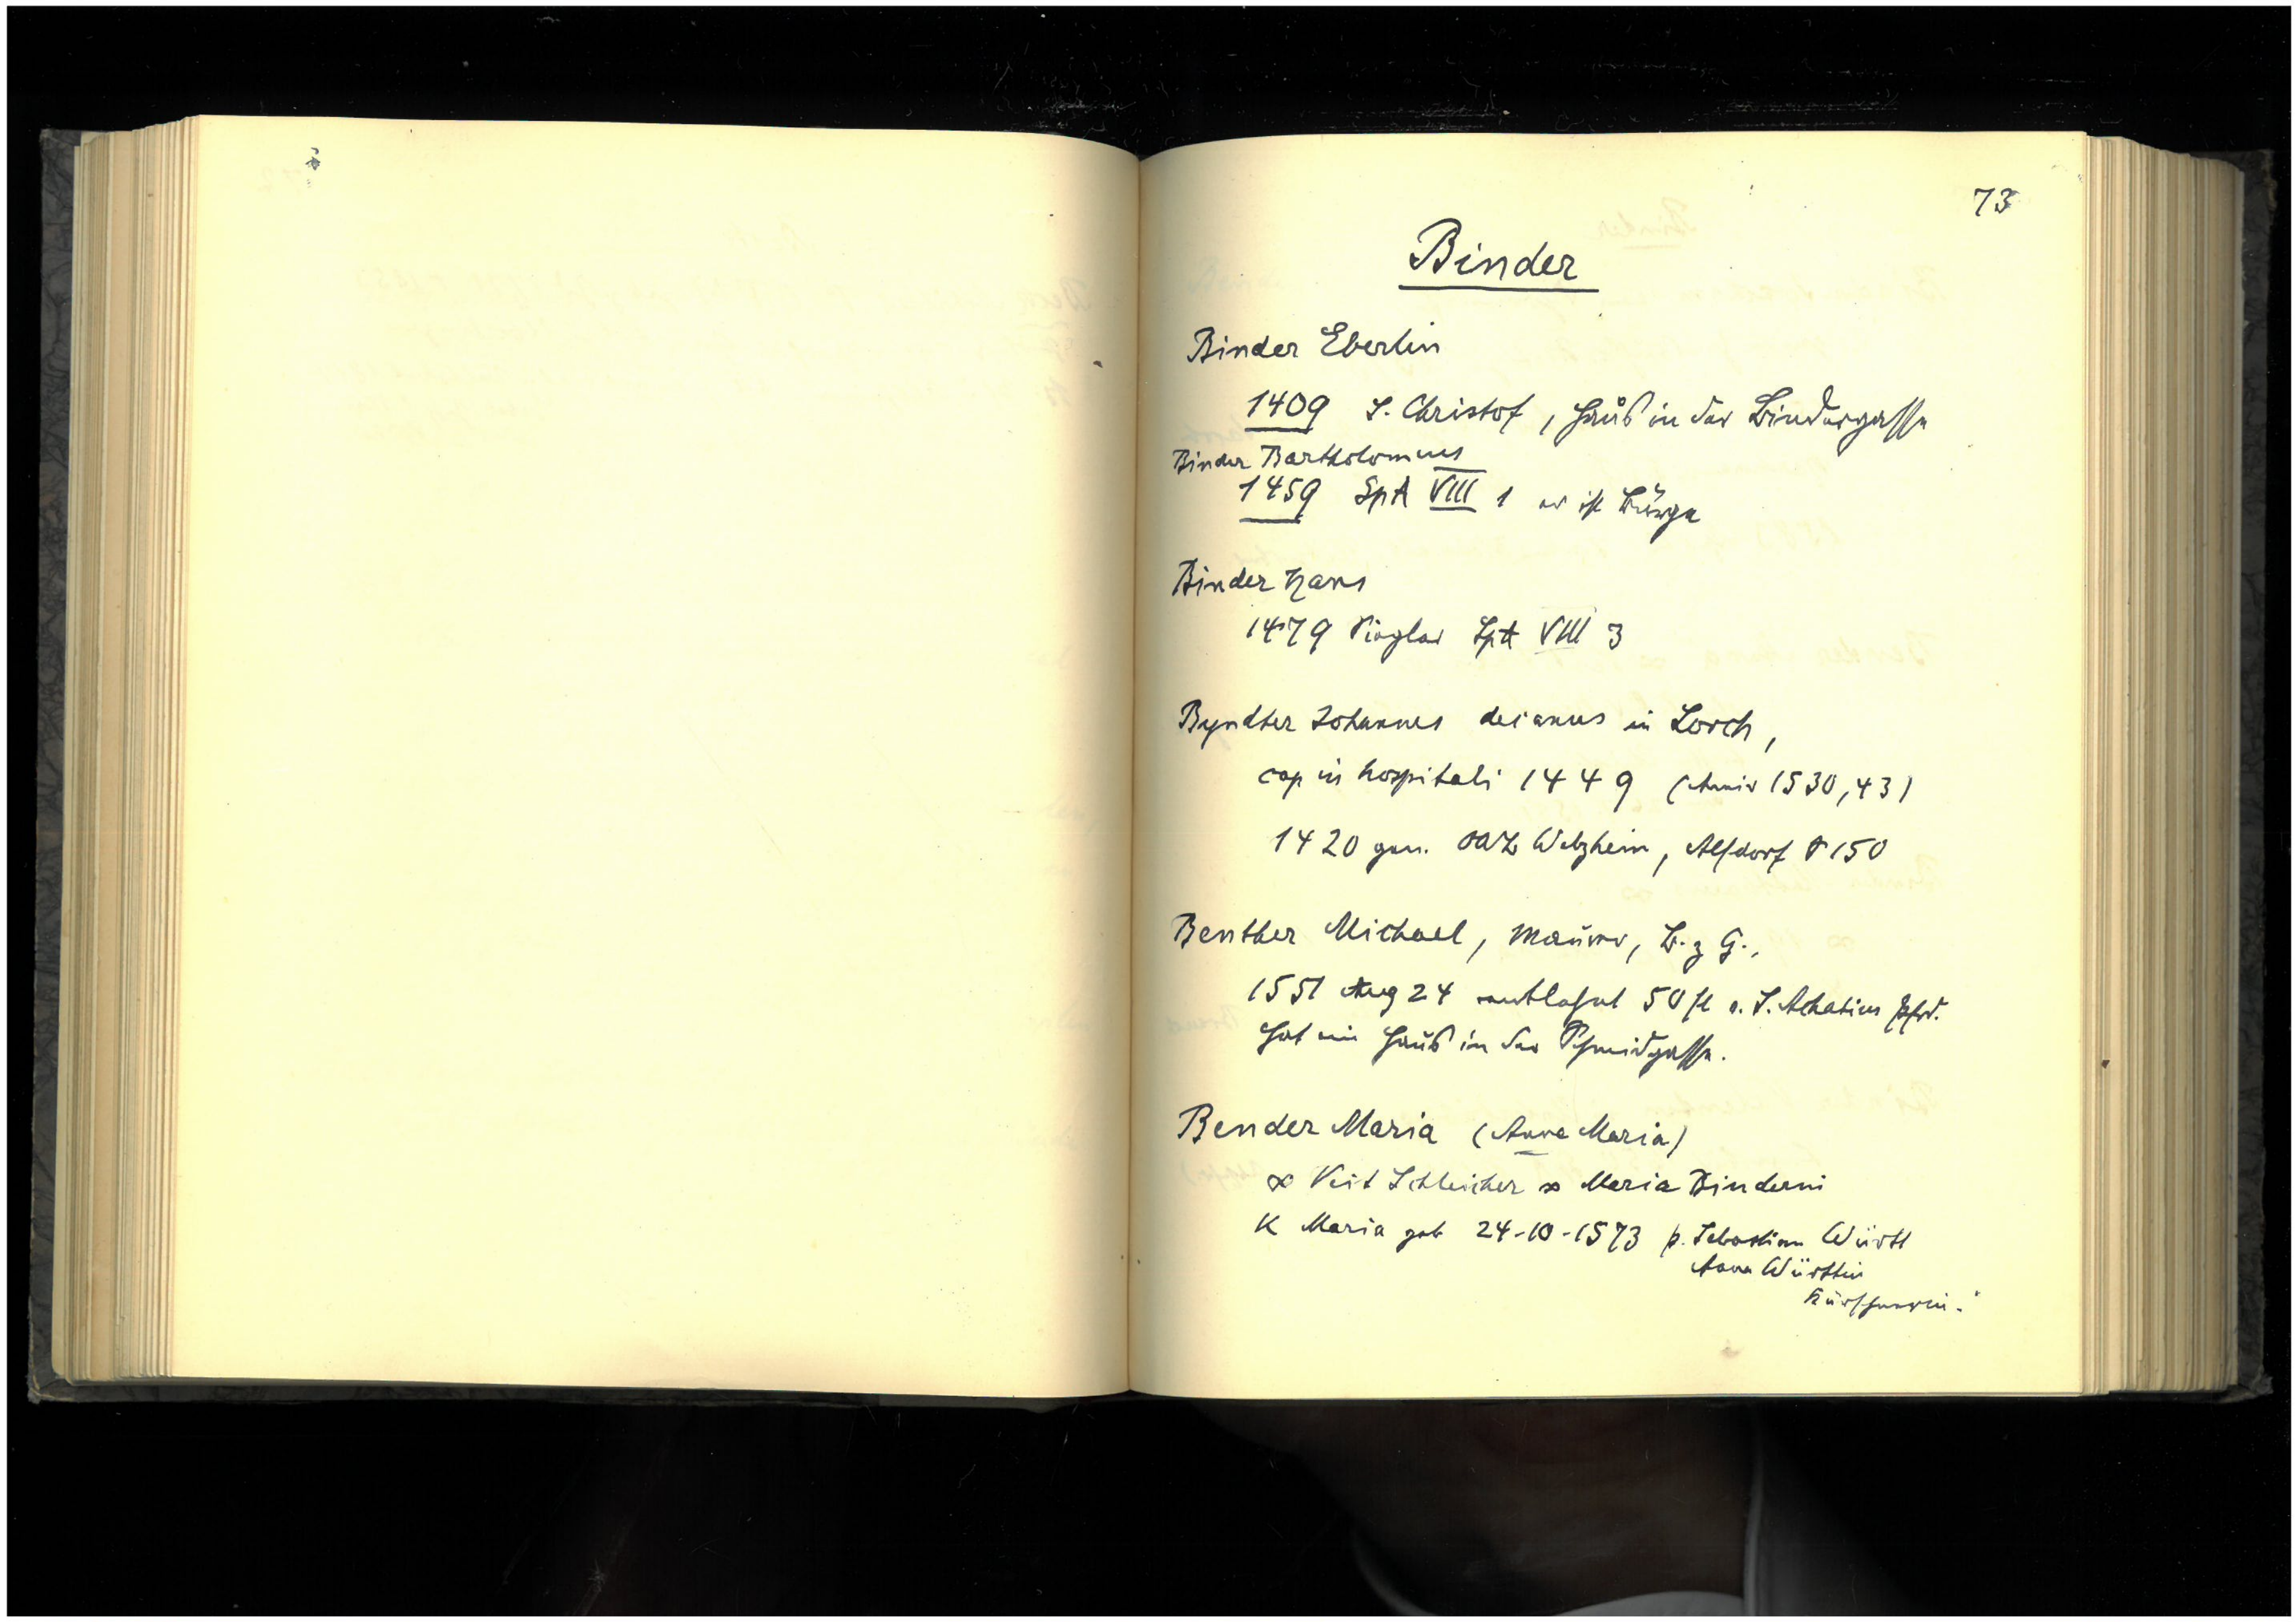 73
Binder
Binder Eberlin
1409 S. Christof, Haus in der Bindergasse
Binder Bartholomeus
1459 SpA VIII 1 er ist Bürge
Binder Hans
1479 Siegler SpA VIII 3
Byndter Johannes decanus in Lorch,
cap in hospitali 1449 (Anniv 1530, 43)
1420 gen. OAB Welzheim, Alfdorf S 150
Benther Michael, Maurer, B. z G.,
1551 Aug 24 entlehnt 50 fl v. S. Achatius Pfrd.
hat ein Haus in der Schmidgasse.
Bender Maria (Anna Maria)
∞ Veit Schleicher ∞ Maria Binderni
K Maria geb 24-10-1573 p. Sebastian Württ
Anna Württin
Kürschnerin.